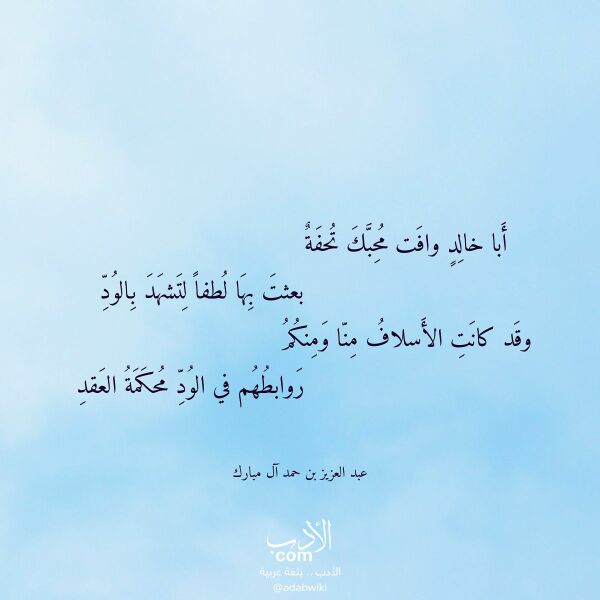 أَبا خالِدٍ وافَت مُحِبَّكَ تُحفَةٌ
بعثتَ بِهَا لُطفاً لِتَشهَدَ بِالوُدِّ
وقَد كانَتِ الأَسلافُ مِنّا وَمِنكُمُ
رَوابطُهُم في الوُدِّ مُحكَمَةُ العَقدِ
عبد العزيز بن حمد آل مبارك
الأدب
com
الأدب .. بلغة عربية
@adabwiki